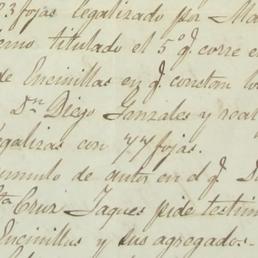 23 fojas legalizado por Ma
erno titulado el 5º q. corre e
de Encinillas en q. constan lo
Dn. Diego Gonzales y real
egalizas con 77 fojas.
umulo de autos en el q. D
ta Cruz Jaques pide testim
Encinillas y sus agregados.-